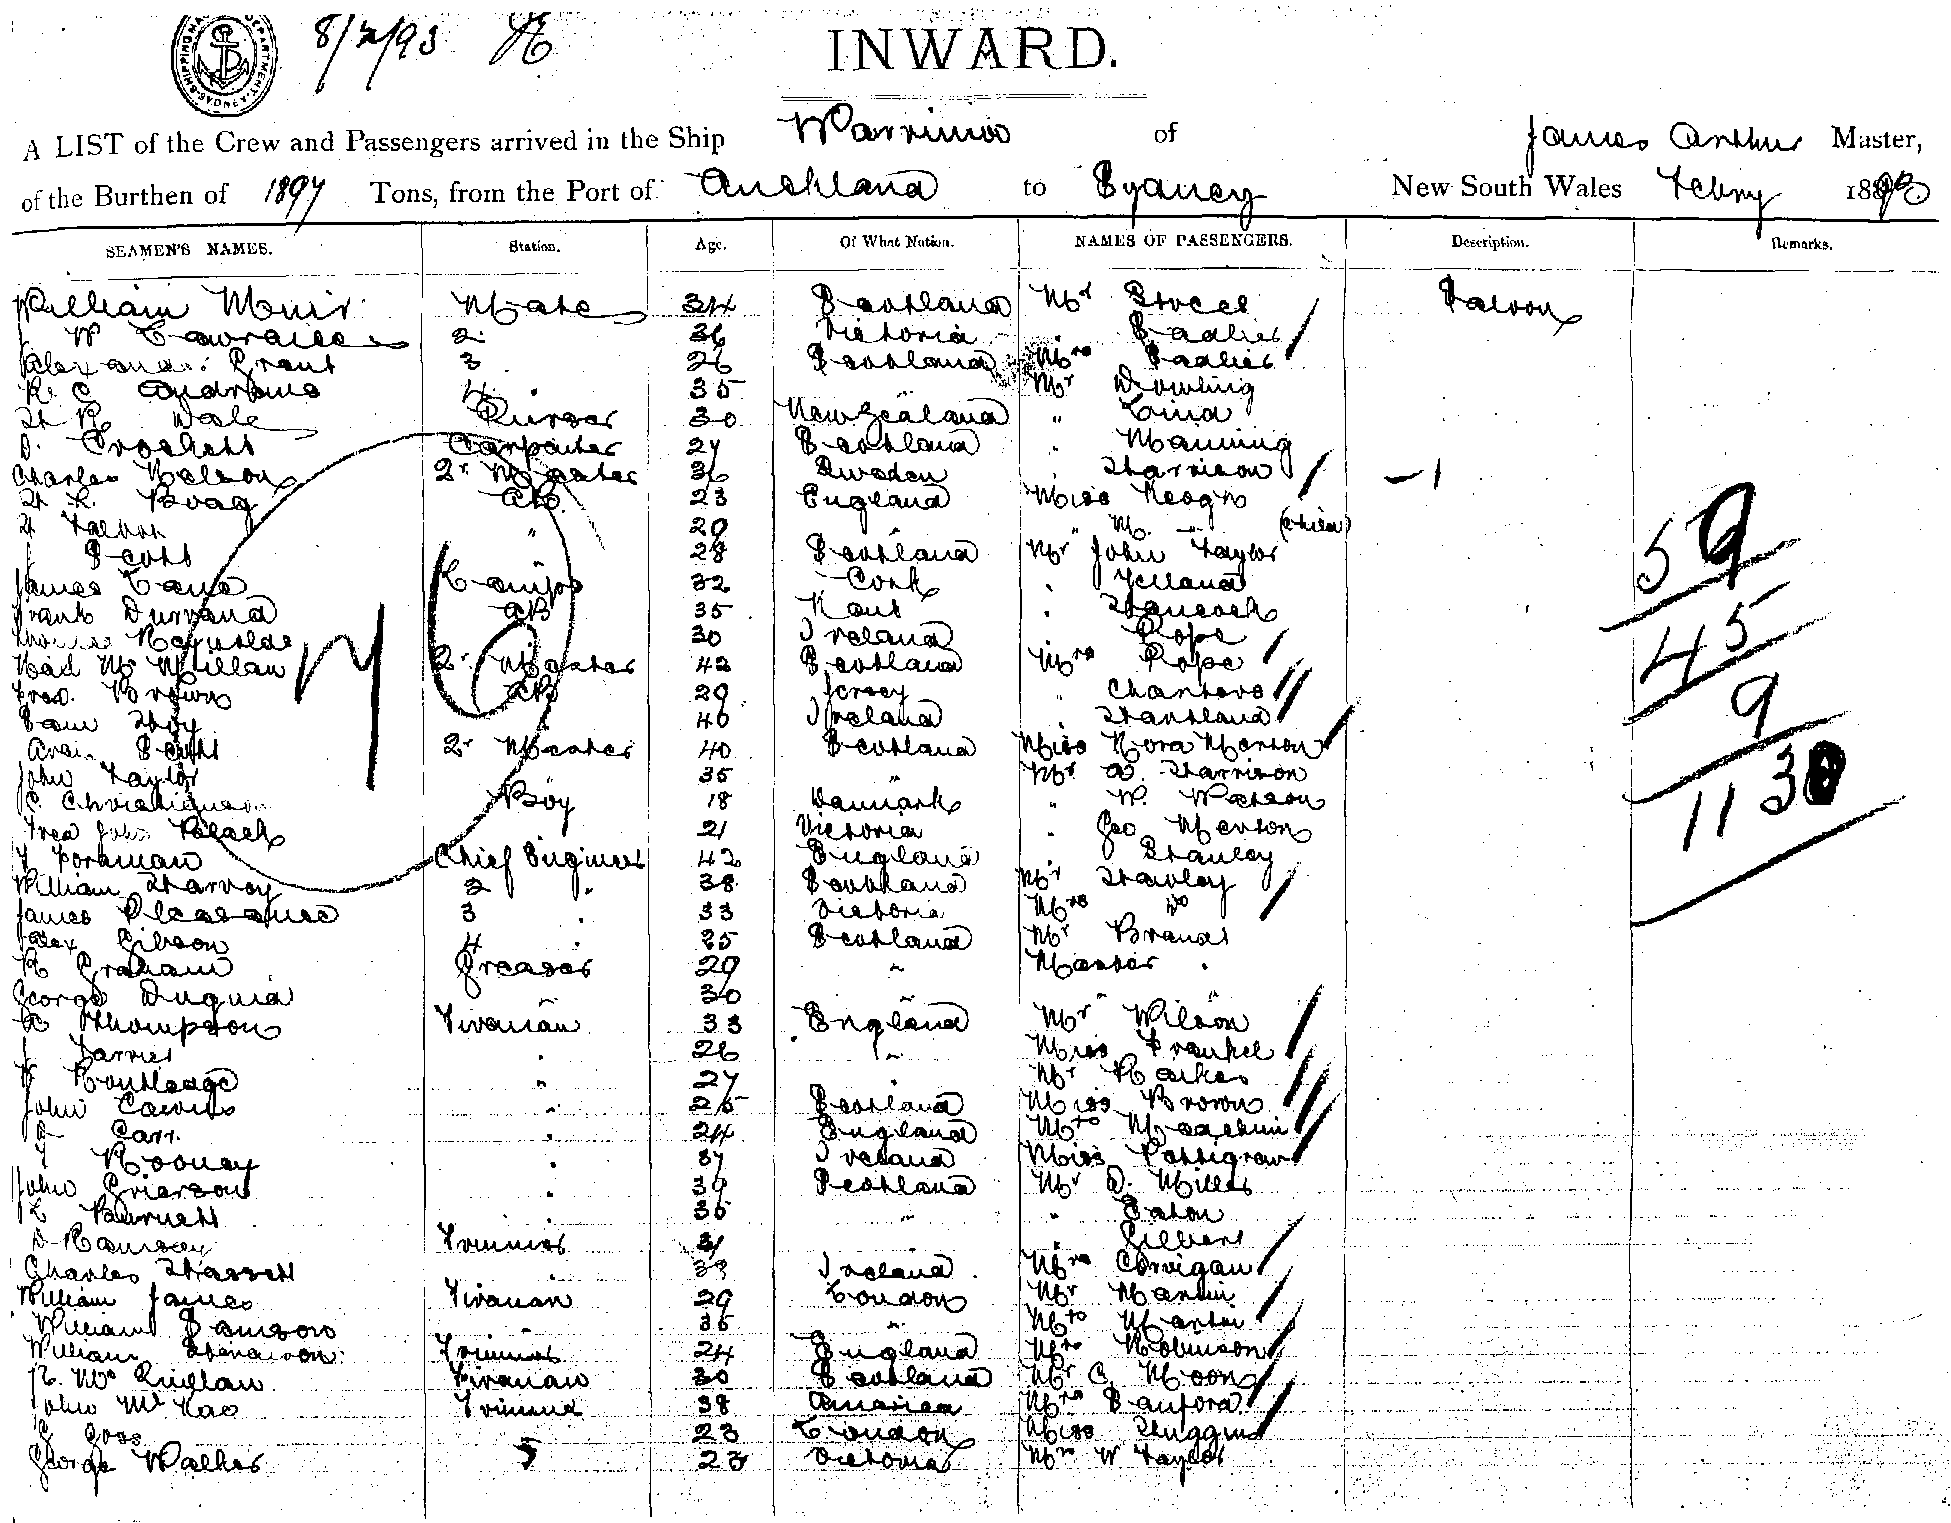 SHIPPING MASTER'S DEPARTMENT
8/2/93
INWARD.
A LIST of the Crew and Passengers arrived in the Ship Warrimoo of James Arthur Master,
of the Burthen of 1897 Tons, from the Port of Auckland to Sydney New South Wales Febry 1893
SEAMEN'S NAMES. Station. Age. Of What Nation. NAMES OF PASSENGERS. Description. Remarks.
William Muir Mate 34 Scotland Mr Saloon
W 2 36 Victoria " Sadlier
Grant 3 26 Scotland Mrs Sadlier
R. C. Andrews 4 " 35 Mr Dowling
H R Dale Purser 30 New Zealand " Lind
D. Crockett Carpenter 27 Scotland " Manning
Charles Nelson 2r Master 36 Sweden " Harrison — 1
H L Boag AB 23 England Miss Keogh
H " 29 " M. " (child)
J Scott 28 Scotland Mr John Taylor
James Lane Lamps 32 Cork " Yelland
Frank Durrand AB 35 Kent " Hancock
Thomas Reynolds 30 Ireland Pope
Neil McMillan 2r Master 42 Scotland Mrs Pope
Fred. Brown AB 29 Jersey " Charters
Sam Hoy 40 Ireland " Hartland
Scott 2r Master 40 Scotland Miss Nora Merton
John Taylor 35 " Mr A. Harrison
C Christiansen Boy 18 Denmark " W. Watson
Fred John 21 Victoria " Geo Merton
Foreman Chief Engineer 42 England Stanley
William Harvey 2 " 38 Scotland Mr Stanley
James Pleasance 3 " 33 Victoria Mrs Do
Alex Gibson 4 " 25 Scotland Mr Brand
R Graham Greaser 29 " Master "
George Duguid 30 " " "
Thompson Fireman 33 England Mr Wilson
J " 26 " Miss Frankel
Routledge " 27 " Mr
John " 25 Scotland Miss Brown
Carr " 24 England Mrs
J Rooney " 37 Ireland Miss Pettigrew
John Grierson " 39 Scotland Mr D. Miller
Burnett " 35 " " Eaton
D Ramsay Trimmer 31 " Gilbert
Charles Hassett 33 Ireland Mrs Corrigan
William James Fireman 29 London Mr Martin
William Samson " 35 " Mrs Martin
William Trimmer 24 England Mrs Robinson
R. Mc Fireman 30 Scotland Mr C Moon
John McKae Trimmer 38 America Mrs Sanford
Goss 23 London Miss Huggins
George Walker 23 Victoria W Taylor
59
45
9
113